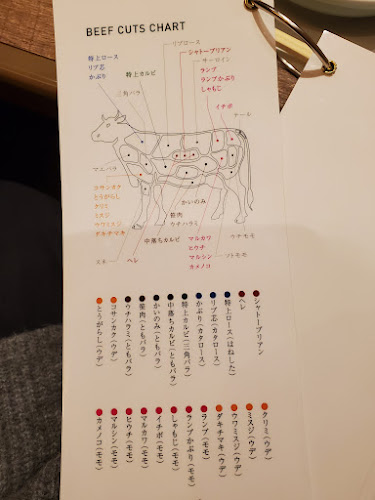 BEEF CUTS CHART
リブロース
特上ロース
リブ芯
かぶり
特上カルビ
シャトーブリアン
サーロイン
ランプ
ランプかぶり
しゃもじ
イチボ
三角バラ
テール
マエバラ
コサンカク
とうがらし
クリミ
ミスジ
ウワミスジ
ダキチマキ
かいのみ
笹肉
ウチハラミ
スネ
ヘレ
中落ちカルビ
マルカワ
ヒウチ
マルシン
カメノコ
ウチモモ
ソトモモ
シャトーブリアン
ヘレ
特上ロース(はねした)
リブ芯(カタロース)
かぶり(カタロース)
特上カルビ(三角バラ)
中落ちカルビ(ともバラ)
かいのみ(ともバラ)
笹肉(ともバラ)
ウチハラミ(ともバラ)
コサンカク(ウデ)
とうがらし(ウデ)
クリミ(ウデ)
ミスジ(ウデ)
ウワミスジ(ウデ)
ダキチマキ(ウデ)
ランプ(モモ)
ランプかぶり(モモ)
しゃもじ(モモ)
イチボ(モモ)
マルカワ(モモ)
ヒウチ(モモ)
マルシン(モモ)
カメノコ(モモ)